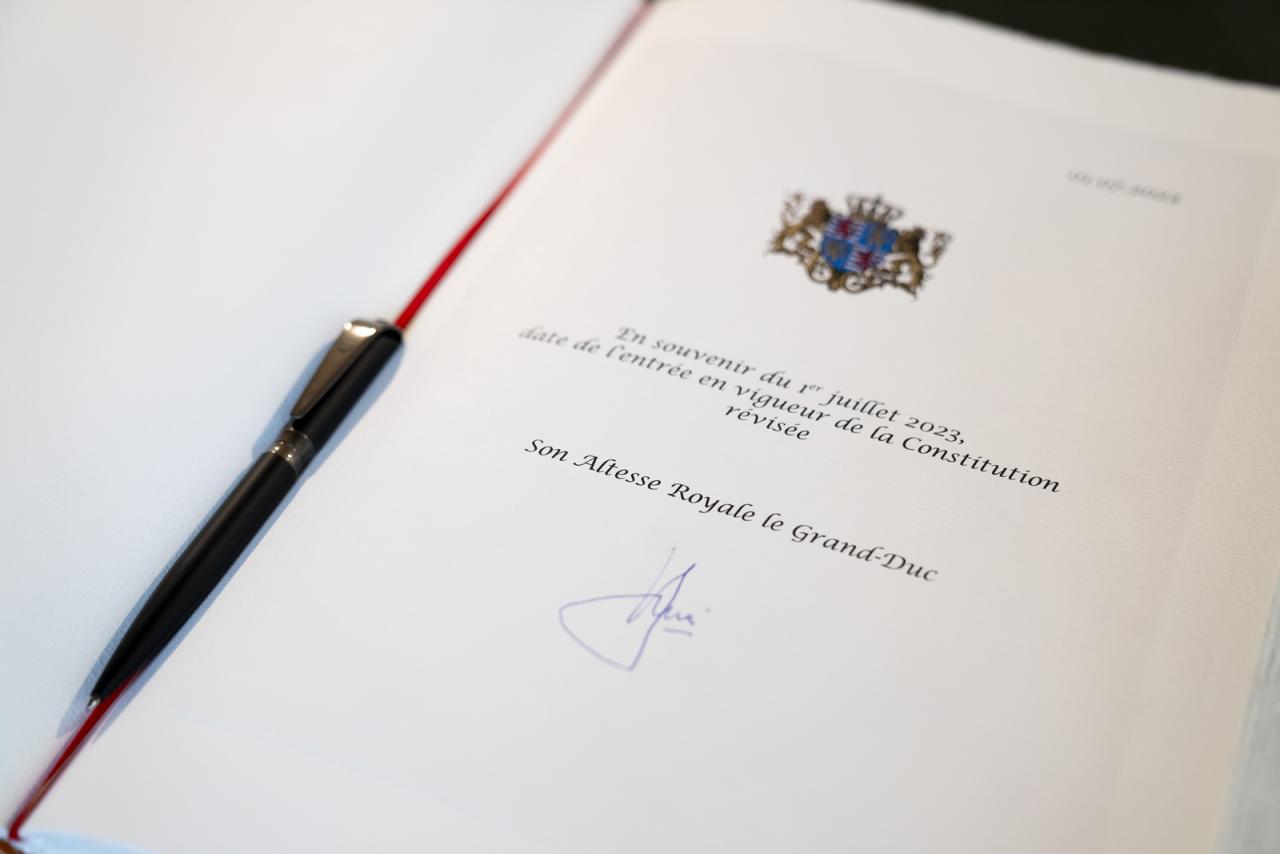 En souvenir du 1er juillet 2023,
date de l'entrée en vigueur de la Constitution
révisée
Son Altesse Royale le Grand-Duc
Henri